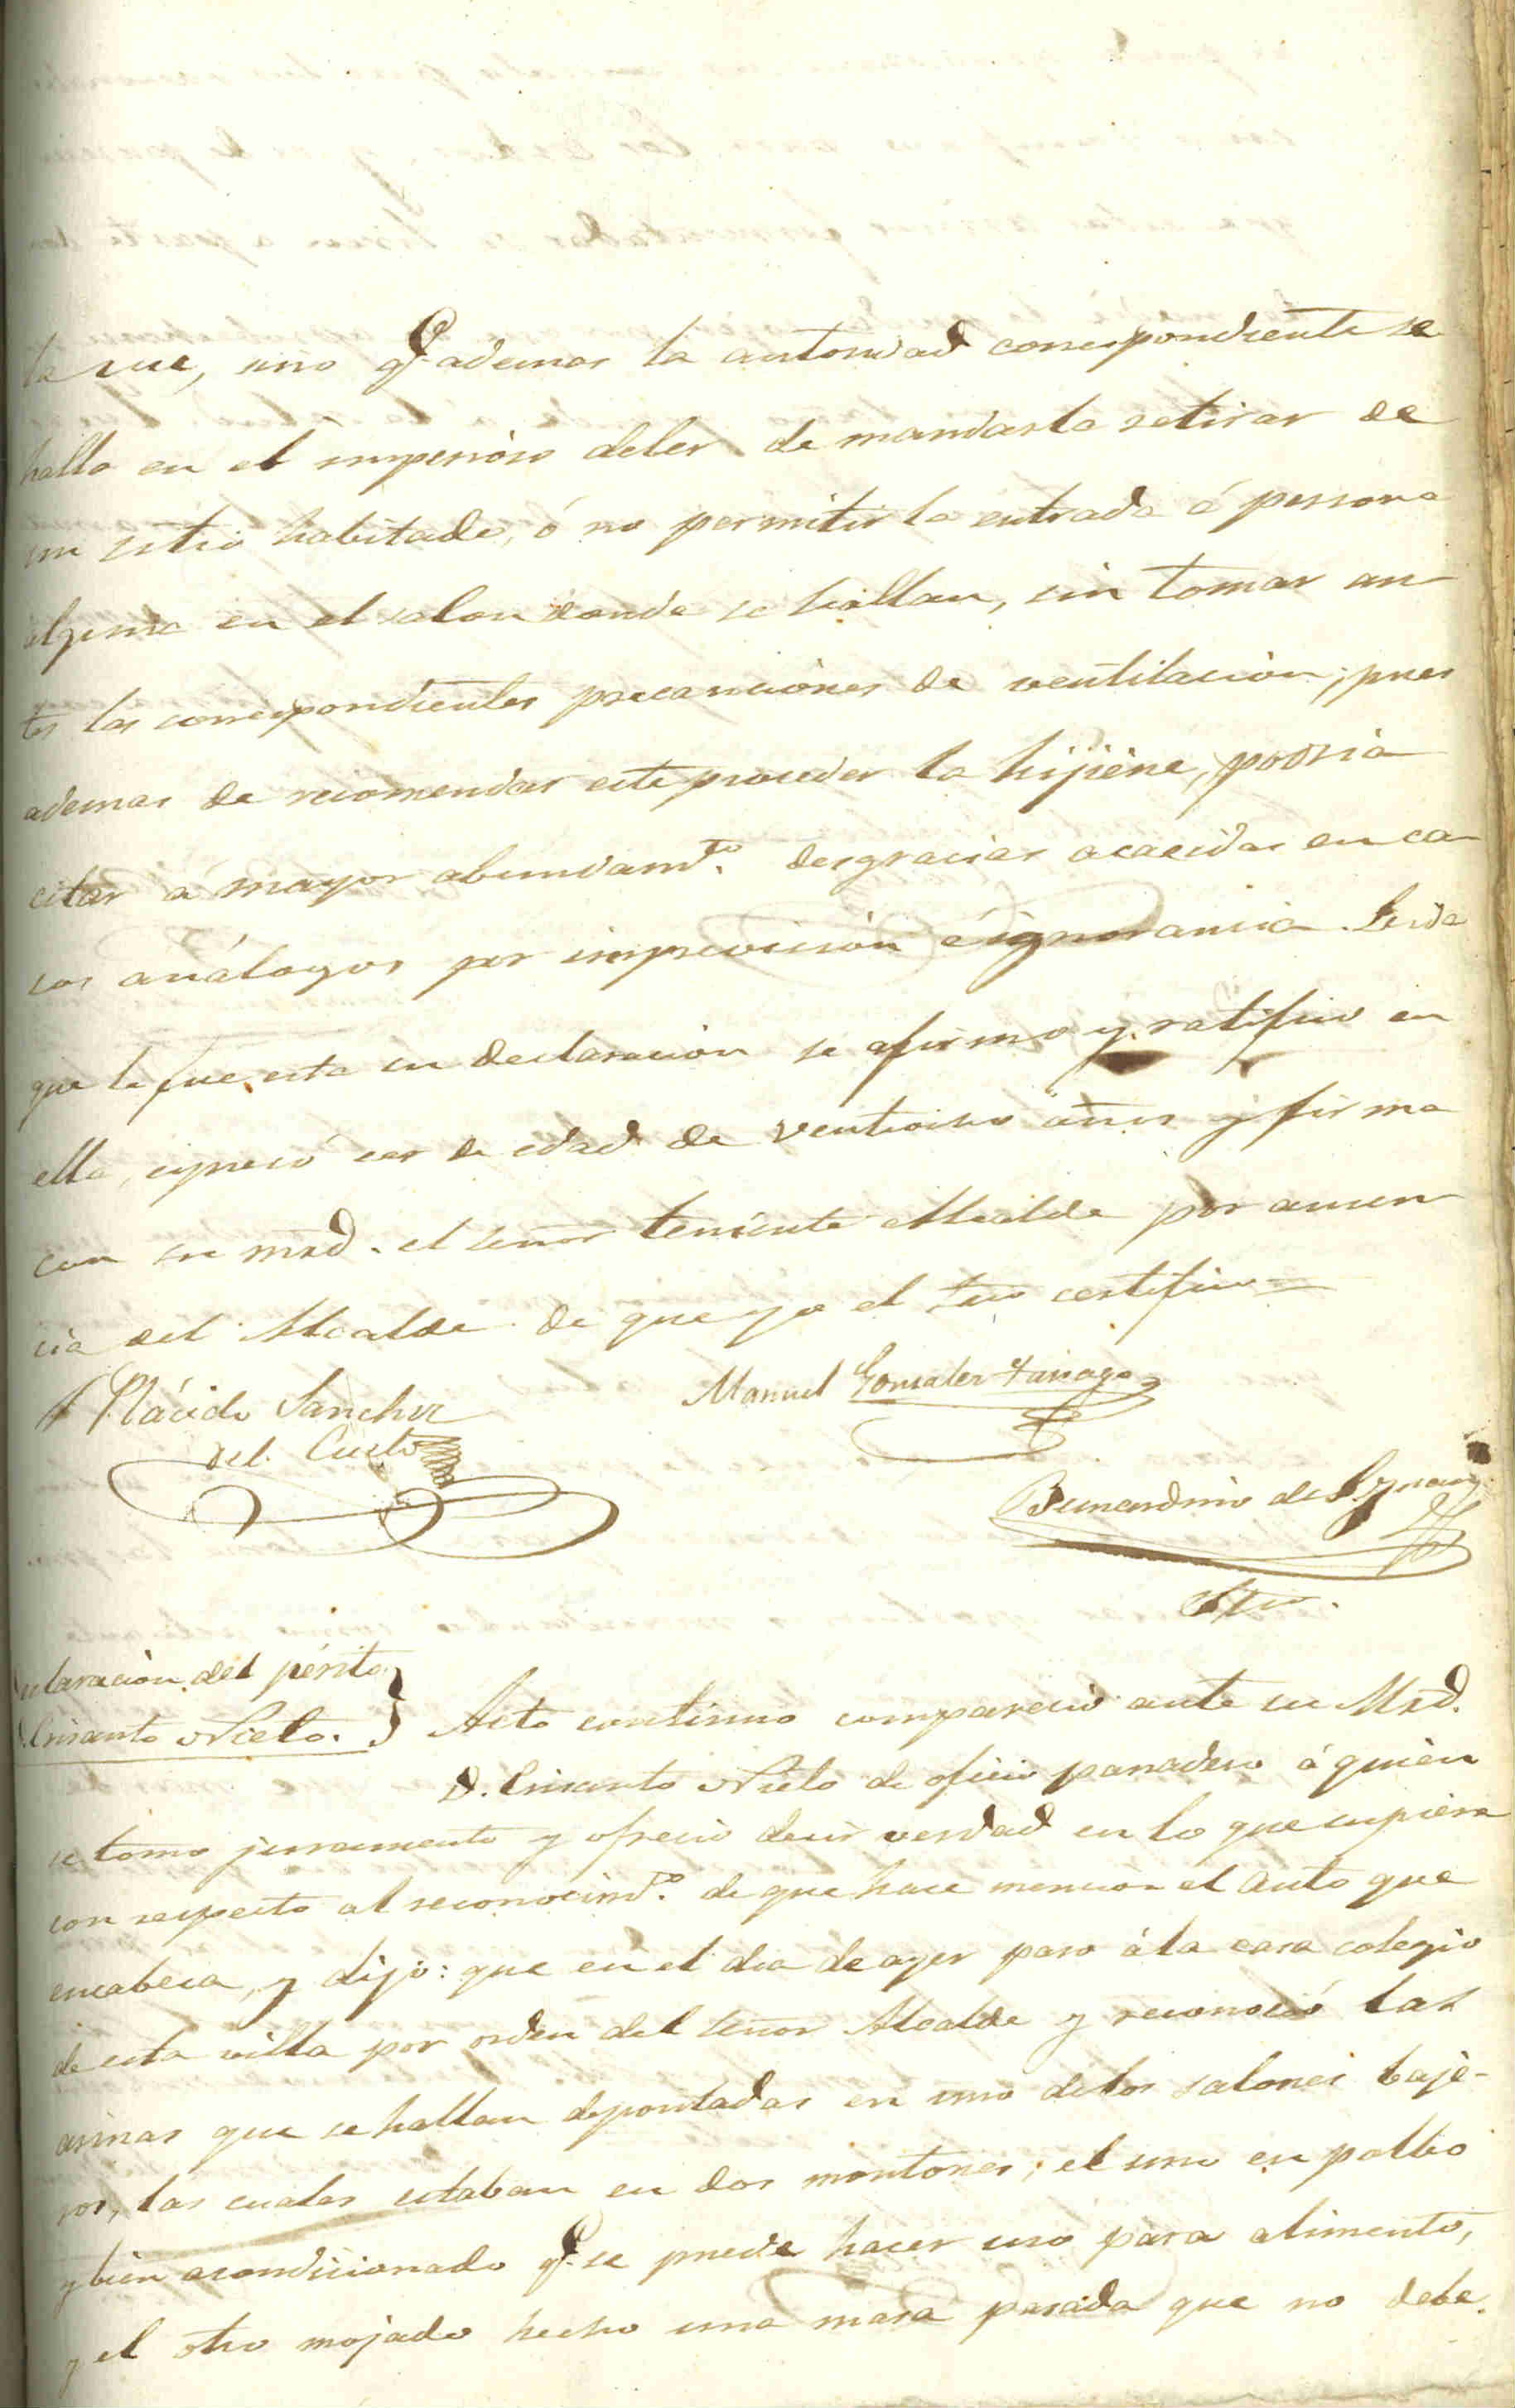 la sue, sino q.e ademas la autoridad correspondiente se
halla en el imperioso deber de mandarla retirar de
un sitio habitado, ó no permitir la entrada á persona
alguna en el salon donde se hallan, sin tomar an
tes las correspondientes precauciones de ventilacion; pues
ademas de recomendar este proceder la hijiene, podria
citar á mayor abundam.to desgracias acaecidas en ca
sos análogos por imprevicion é ignorancia. Leida
que le fue esta su declaracion se afirmo y ratifico en
ella, espresó ser de edad de ventiocho años y firma
con su mrd. el señor teniente Alcalde por ausen
cia del Alcalde de que yo el Srio certifico=
Plácido Sanchez
del Cueto
Manuel Gonzalez Farrago
Bernardino de
Srio.
claracion del périto
Crisanto Nieto.
Acto continuo comparecio ante su Mrd.
D. Crisanto Nieto de oficio panadero á quien
se tomo juramento y ofrecio decir verdad en lo que supiera
con respecto al reconocim.to de que hace mencion el auto que
encabeza, y dijo: que en el dia de ayer paso á la casa colegio
de esta villa por orden del señor Alcalde y reconoció las
arinas que se hallan depositadas en uno de los salones baje-
ros, las cuales estaban en dos montones; el uno en polbo
y bien acondicionado q.e se puede hacer uso para alimento,
y el otro mojado hecho una masa pasada que no debe